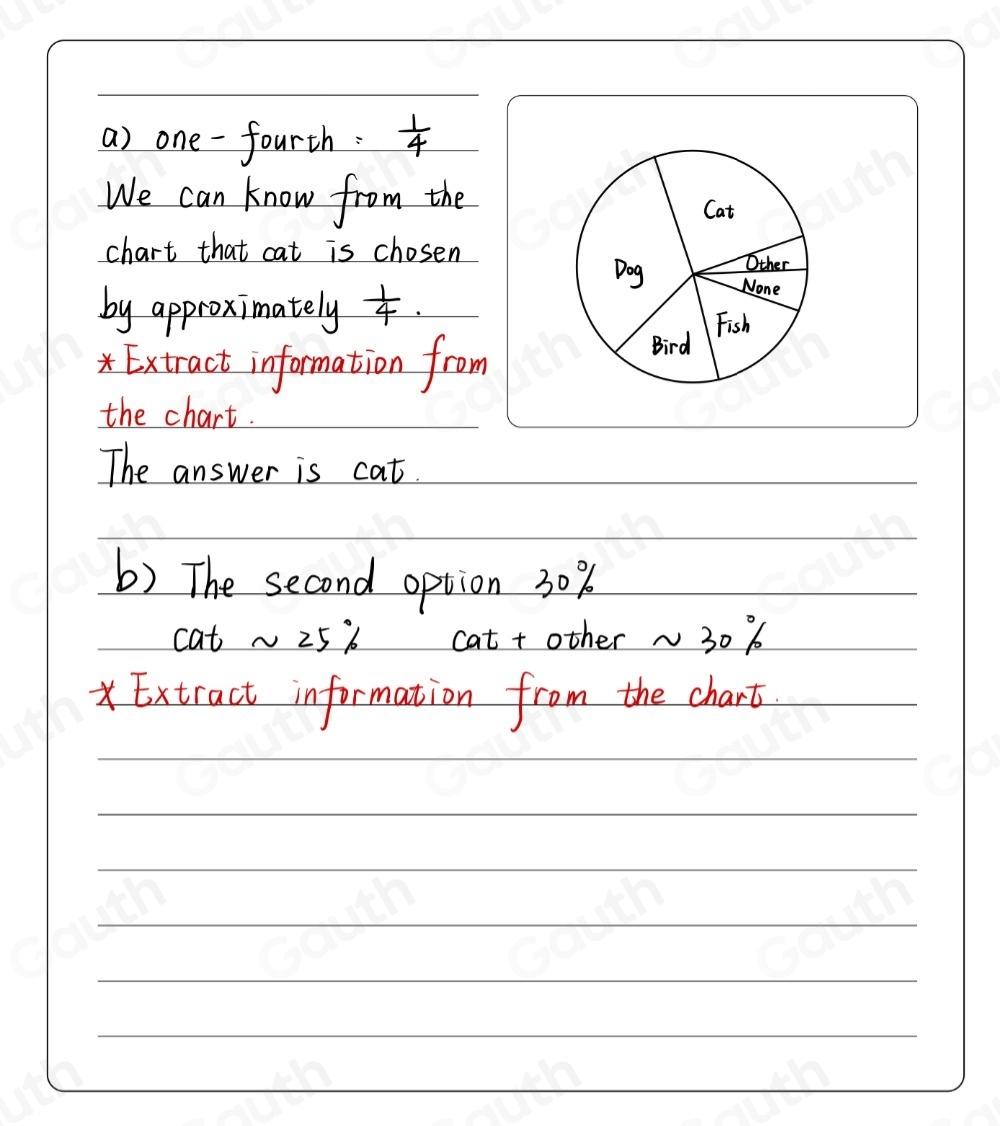 a) one-fourth: 1/4
We can know from the
chart that cat is chosen
by approximately 1/4.
* Extract information from
the chart.
The answer is cat.
Cat
Dog
Other
None
Fish
Bird
b) The second option 30%
cat ~ 25% cat + other ~ 30%
* Extract information from the chart.
Gauth